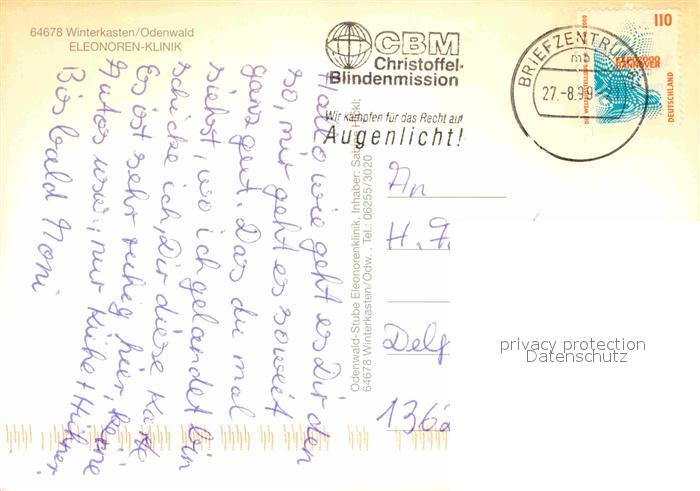 64678 Winterkasten/Odenwald
ELEONOREN-KLINIK
CBM
Christoffel-
Blindenmission
Wir kämpfen für das Recht auf
Augenlicht!
BRIEFZENTRUM
mb
27.-8.99
110
EXPO2000
HANNOVER
DEUTSCHLAND
Hallo wie geht es Dir den
so, mir geht es soweit
ganz gut. Das du mal
siehst, wo ich gelandet bin
schicke ich Dir diese Karte
Es ist sehr ruhig hier, keine
Autos usw., nur Kühe + Hühner
Bis bald Moni
Odenwald-Stube Eleonorenklinik, Inhaber:
64678 Winterkasten/Odw., Tel.: 06255/3020
An
H.
Delg
1362
privacy protection
Datenschutz